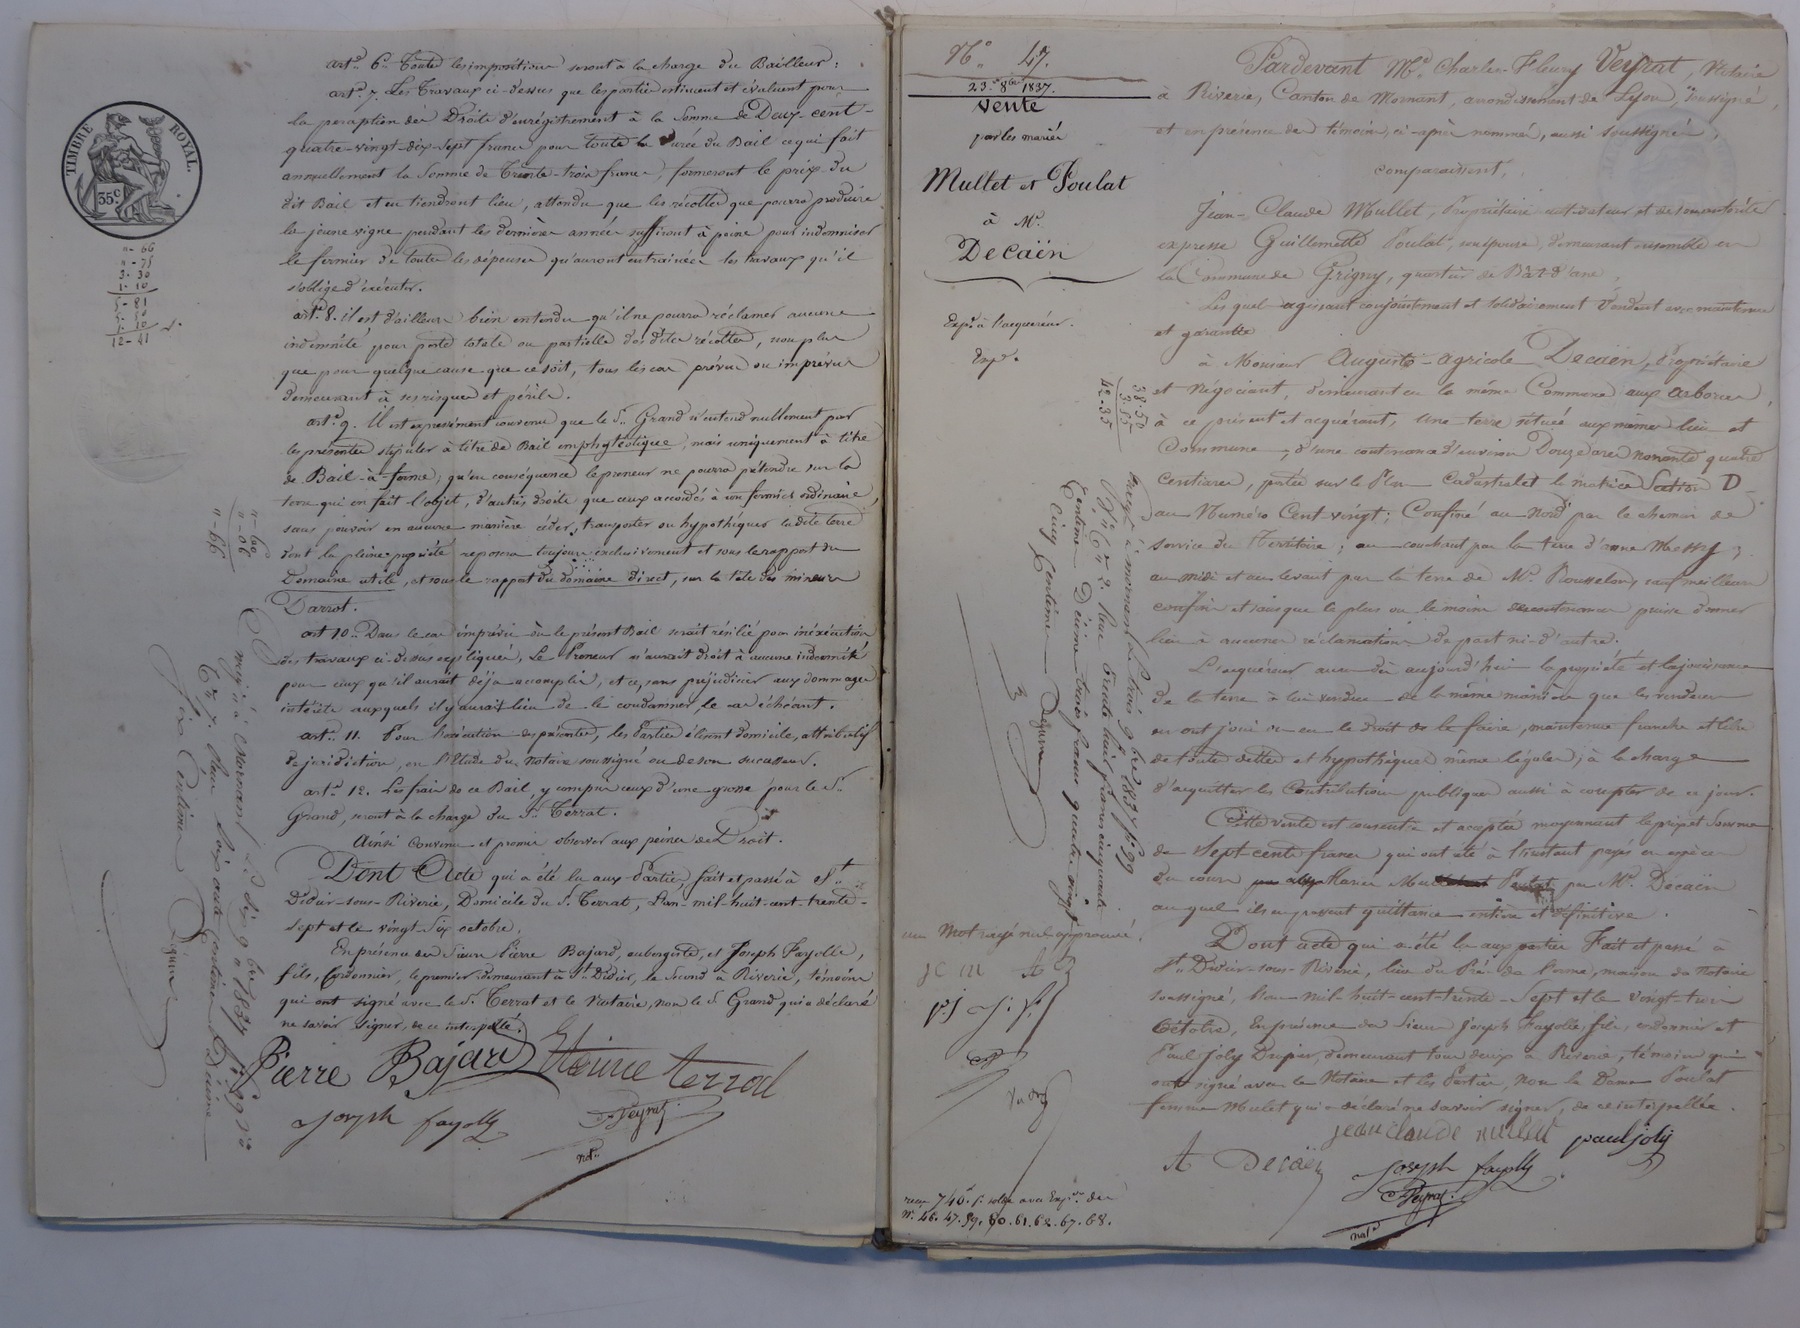 TIMBRE ROYAL.
35.c
art.e 6.e Toutes les impositions seront à la charge du Bailleur.
art.e 7. Les Travaux ci-dessus que les parties estiment et évaluent pour
la perception des Droits d'enrégistrement à la Somme de Deux-cent-
quatre-vingt-dix-sept francs pour toute la durée du Bail ce qui fait
annuellement la Somme de Trente-trois francs, formeront le prix du
dit Bail et en tiendront lieu, attendu que les récoltes que pourra produire
la jeune vigne pendant les dernières années suffiront à peine pour indemniser
le fermier de toutes les dépenses qu'auront entrainées les travaux qu'il
s'oblige d'exécuter.
art.e 8. il est d'ailleurs bien entendu qu'il ne pourra réclamer aucune
indemnité pour perte totale ou partielle des dites récoltes, non plus
que pour quelque cause que ce soit, tous les cas prévus ou imprévus
demeurant à ses risques et périls.
art.e 9. Il est expressément convenu que le S.r Grand n'entend nullement par
les présentes stipuler à titre de Bail emphytéotique, mais uniquement à titre
de Bail-à-ferme; qu'en conséquence le preneur ne pourra prétendre sur la
terre qui en fait l'objet, d'autres droits que ceux accordés à un fermier ordinaire,
sans pouvoir en aucune manière céder, transporter ou hypothéquer la dite terre
dont la pleine propriété reposera toujours exclusivement et sous le rapport du
Domaine utile, et sous le rapport du domaine direct, sur la tête des mineurs
Darrot.
art 10.. Dans le cas imprévu où le présent Bail serait résilié pour inéxécution
des travaux ci-dessus expliqués, Le Preneur n'aurait droit à aucune indemnité
pour ceux qu'il aurait déjà accomplis, et ce, sans préjudicier aux dommages
intérêts auxquels il y aurait lieu de le condamner, le cas échéant.
art.. 11. Pour l'exécution des présentes, les Parties élisent domicile, attributif
de juridiction, en l'Etude du notaire soussigné ou de son successeur.
art.e 12. Les frais de ce Bail, y compris ceux d'une grosse pour le S.r
Grand, seront à la charge du S.r Terrat.
Ainsi convenu et promis observer aux peines de Droit.
Dont Acte qui a été lu aux Parties, fait et passé à S.t
Didier-sous-Riverie, Domicile du S. Terrat, L'an-mil-huit-cent-trente-
sept et le vingt-six octobre.
En présence des Sieurs Pierre Bajard, aubergiste, et Joseph Fayolle,
fils, Cordonnier, le premier demeurant à S.t Didier, le second à Riverie, témoins
qui ont signé avec le S. Terrat et le Notaire, non le S. Grand qui a déclaré
ne savoir signer, de ce interpellé.
Pierre Bajard Etienne terrat
Joseph fayolle
Veyrat
not.re
N.o 47.
23. 8bre 1837.
Vente
par les mariés
Mullet et Poulat
à M.r
Decaën
Exp.e à l'acquéreur.
Exp.e
38-50
3.85
42-35
un Mot rayé nul approuvé.
JCM
reçu 740.f p. solde avec Exp.on des
n.os 46. 47. 59. 60. 61. 62. 67. 68.
Pardevant M.e Charles-Fleury Veyrat, Notaire
à Riverie, Canton de Mornant, arrondissement de Lyon, soussigné,
et en présence des témoins ci-après nommés, aussi soussignés,
comparaissent,
Jean-Claude Mullet, Propriétaire cultivateur et de son autorité
expresse Guillemette Poulat, son épouse, demeurant ensemble en
la Commune de Grigny, quartier de Bât-d'ane,
Lesquels agissant conjointement et solidairement Vendent avec maintenue
et garantie
à Monsieur Auguste-Agricole Decaën, Propriétaire
et Négociant, demeurant en la même Commune aux arboras,
à ce présent et acquérant, une terre située aux mêmes lieu et
Commune, d'une contenance d'environ Douze ares nonante quatre
Centiares, portée sur le Plan Cadastral et la matrice Section D
au Numéro Cent-vingt; Confiné au Nord par le chemin de
service du Territoire; au couchant par la terre d'anne Messy;
au midi et au levant par la terre de M.r Rousselon, sauf meilleurs
confins et sans que le plus ou le moins de contenance puisse donner
lieu à aucunes réclamations de part ni d'autre.
L'acquéreur aura dès aujourd'hui la propriété et la jouissance
de la terre à lui vendue de la même manière que les vendeurs
en ont joui ou eu le droit de le faire, maintenue franche et libre
de toute dettes et hypothèques même légales; à la charge
d'acquitter les Contributions publiques aussi à compter de ce jour.
Cette vente est consentie et acceptée moyennant le prix et Somme
de Sept cents francs qui ont été à l'instant payés en espèces
du cours aux Mariés Mullet Poulat par M.r Decaën
auquel ils en passent quittance entière et définitive.
Dont acte qui a été lu aux parties Fait et passé à
S.t Didier-sous-Riverie, lieu du Pré de Lorme, maison du Notaire
soussigné, l'an-mil-huit-cent-trente-Sept et le vingt-trois
Octobre, En présence des Sieurs Joseph Fayolle fils, cordonnier et
Paul Joly Drapier, demeurant tous deux à Riverie, témoins qui
ont signé avec le Notaire et les Parties, non la Dame Poulat
femme Mulet qui a déclaré ne savoir signer, de ce interpellée.
jean claude mullet paul joly
A Decaën
Joseph fayolle
Veyrat
not.re